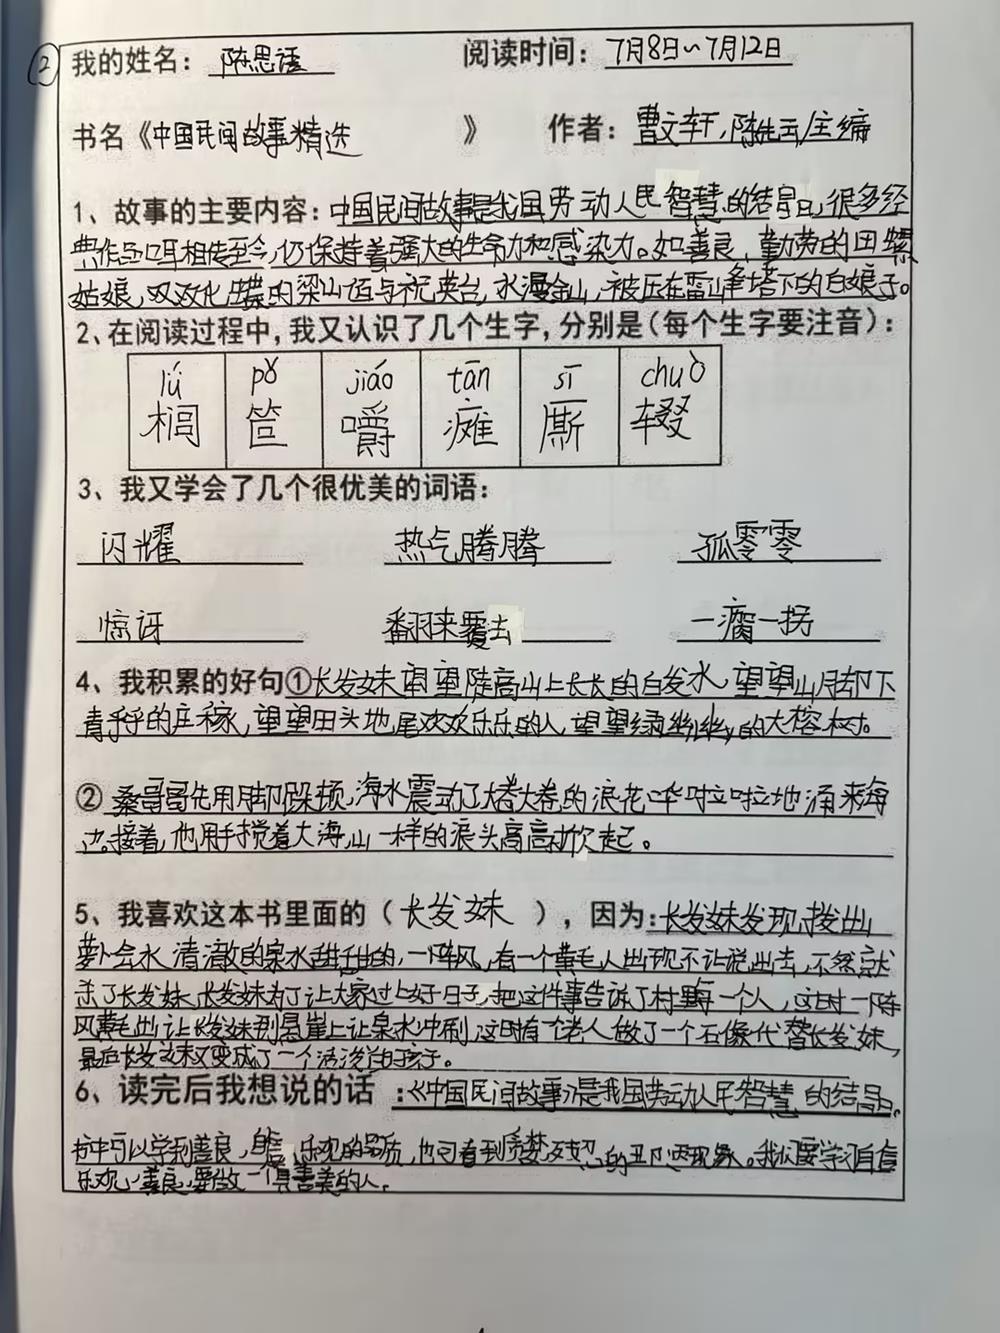 ②
我的姓名：陈思语 阅读时间：7月8日~7月12日
书名《中国民间故事精选》 作者：曹文轩，陈先云/主编
1、故事的主要内容：中国民间故事是我国劳动人民智慧的结晶，很多经
典作品口耳相传至今，仍保持着强大的生命力和感染力。如善良，勤劳的田螺
姑娘，双双化蝶的梁山伯与祝英台，水漫金山，被压在雷峰塔下的白娘子。
2、在阅读过程中，我又认识了几个生字，分别是（每个生字要注音）：
lǘ pǒ jiáo tān sī chuò
榈 笸 嚼 瘫 厮 辍
3、我又学会了几个很优美的词语：
闪耀 热气腾腾 孤零零
惊讶 翻来覆去 一瘸一拐
4、我积累的好句①长发妹望望陡高山上长长的白发水，望望山脚下
青乎乎的庄稼，望望田头地尾欢欢乐乐的人，望望绿幽幽的大榕树。
②桑哥哥先用脚跺顿，海水震动了大卷大卷的浪花哗啦啦地涌来海
边。接着，他用手搅着大海，山一样的浪头高高掀起。
5、我喜欢这本书里面的（长发妹），因为：长发妹发现拨出
萝卜会水清澈的泉水甜甜的，一阵风，有一个黄毛人出现不让说出去，不然就
杀了长发妹，长发妹为了让大家过上好日子，把这件事告诉了村里每一个人，这时一阵
风黄毛出让长发妹到悬崖上让泉水冲刷，这时有个老人做了一个石像代替长发妹，
最后长发妹又变成了一个活泼的孩子。
6、读完后我想说的话：《中国民间故事》是我国劳动人民智慧的结晶。
书中可以学到善良，自信，乐观的品质，也可看到贪婪 的丑陋现象。我们要学习自信
乐观，善良，要做一个真善美的人。